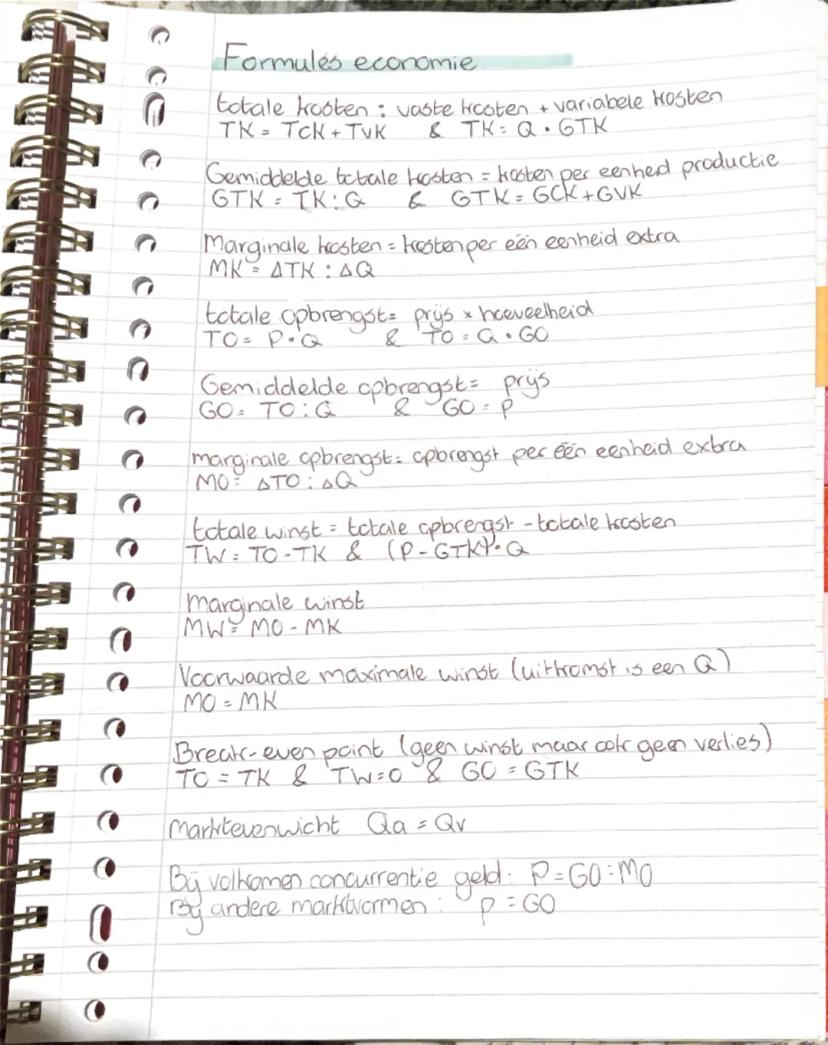 Formules economie
totale kosten : vaste kosten + variabele kosten
TK = TCK + TVK & TK = Q • GTK
Gemiddelde totale kosten = kosten per eenheid productie
GTK = TK : Q & GTK = GCK + GVK
Marginale kosten = kosten per één eenheid extra
MK = ΔTK : ΔQ
totale opbrengst = prijs × hoeveelheid
TO = P • Q & TO = Q • GO
Gemiddelde opbrengst = prijs
GO = TO : Q & GO = P
marginale opbrengst = opbrengst per één eenheid extra
MO = ΔTO : ΔQ
totale winst = totale opbrengst - totale kosten
TW = TO - TK & (P - GTK) • Q
marginale winst
MW = MO - MK
Voorwaarde maximale winst (uitkomst is een Q)
MO = MK
Break-even point (geen winst maar ook geen verlies)
TO = TK & TW = 0 & GO = GTK
Marktevenwicht Qa = Qv
Bij volkomen concurrentie geld: P = GO = MO
Bij andere marktvormen : P = GO